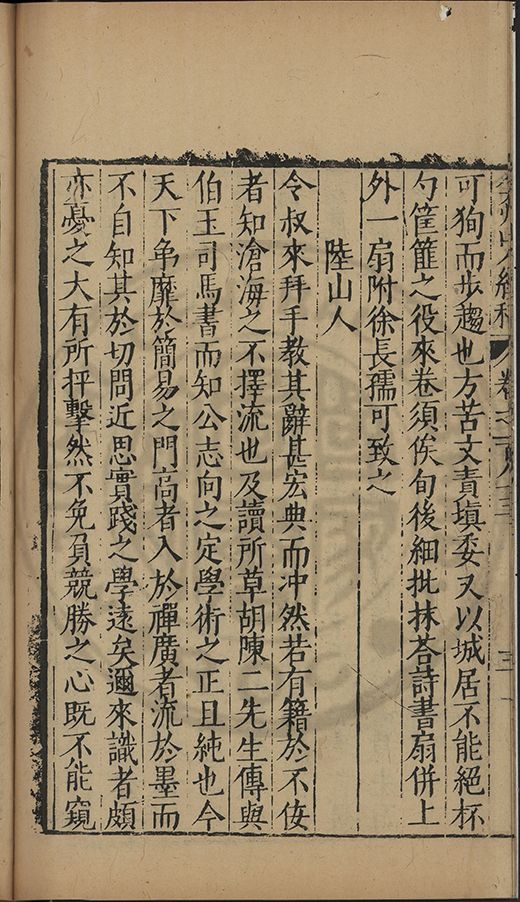 可狥而步趨也方苦文責塡委又以城居不能絕杯
勺筐篚之役來卷須俟旬後細批抹荅詩書扇併上
外一扇附徐長孺可致之
陸山人
令叔來拜手教其辭甚宏典而冲然若有籍於不佞
者知滄海之不擇流也及讀所草胡陳二先生傳與
伯玉司馬書而知公志向之定學術之正且純也今
天下帠靡於簡易之門高者入於禪廣者流於墨而
不自知其於切問近思實踐之學遠矣邇來識者頗
亦憂之大有所抨擊然不免負競勝之心既不能窺